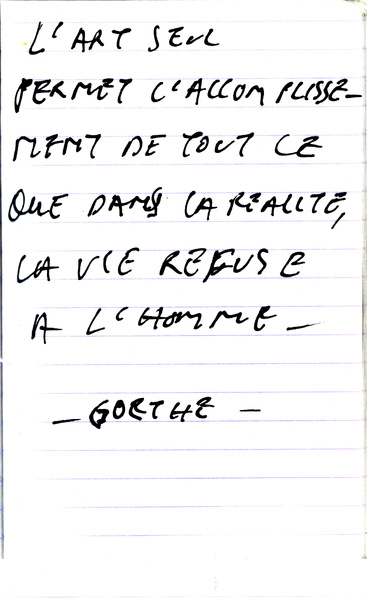 L'ART SEUL
PERMET L'ACCOMPLISSE-
MENT DE TOUT CE
QUE DANS LA REALITE,
LA VIE REFUSE
A L'HOMME -
- GOETHE -